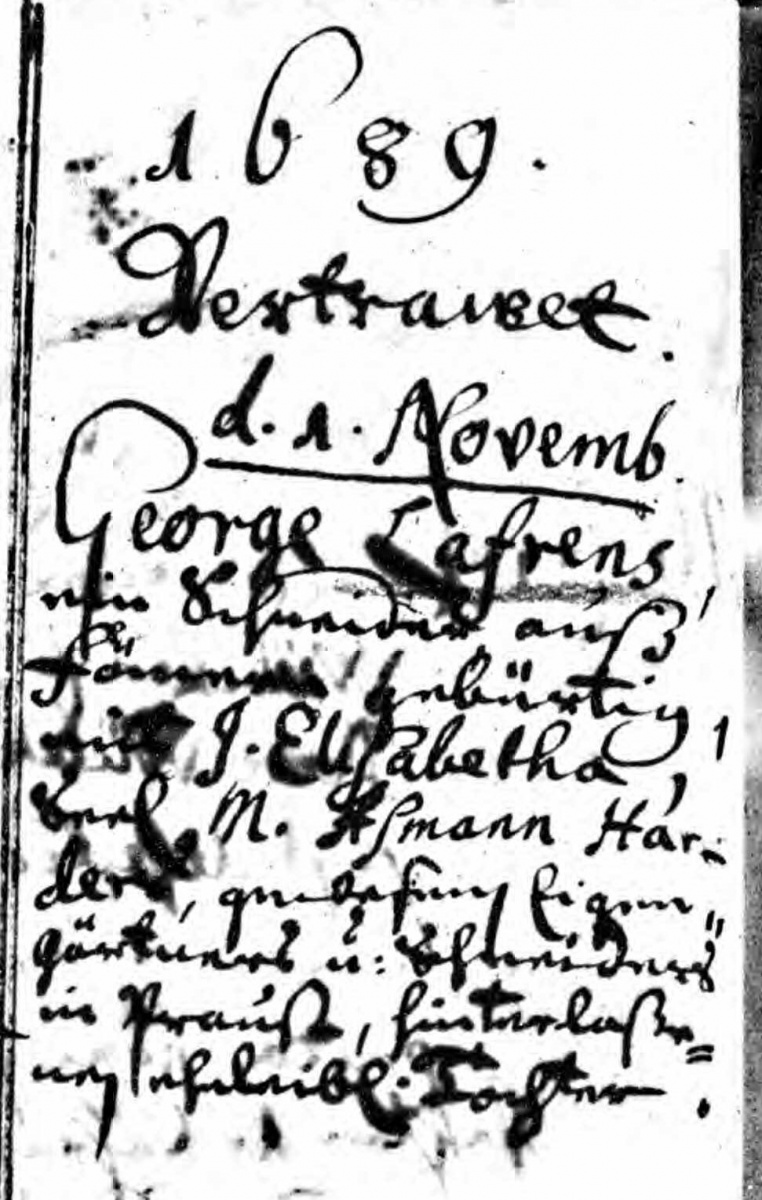 1689.
Vertrawet.
d. 1. Novemb.
George Lafrens,
ein Schneider auß
gebürtig,
mit J. Elisabetha,
Seel. M. Aßmann Har-
ders, gewesenen Eigen„
gärtners u: Schneiders
in Prauß, hinterlaße=
nen ehleibl. Tochter.